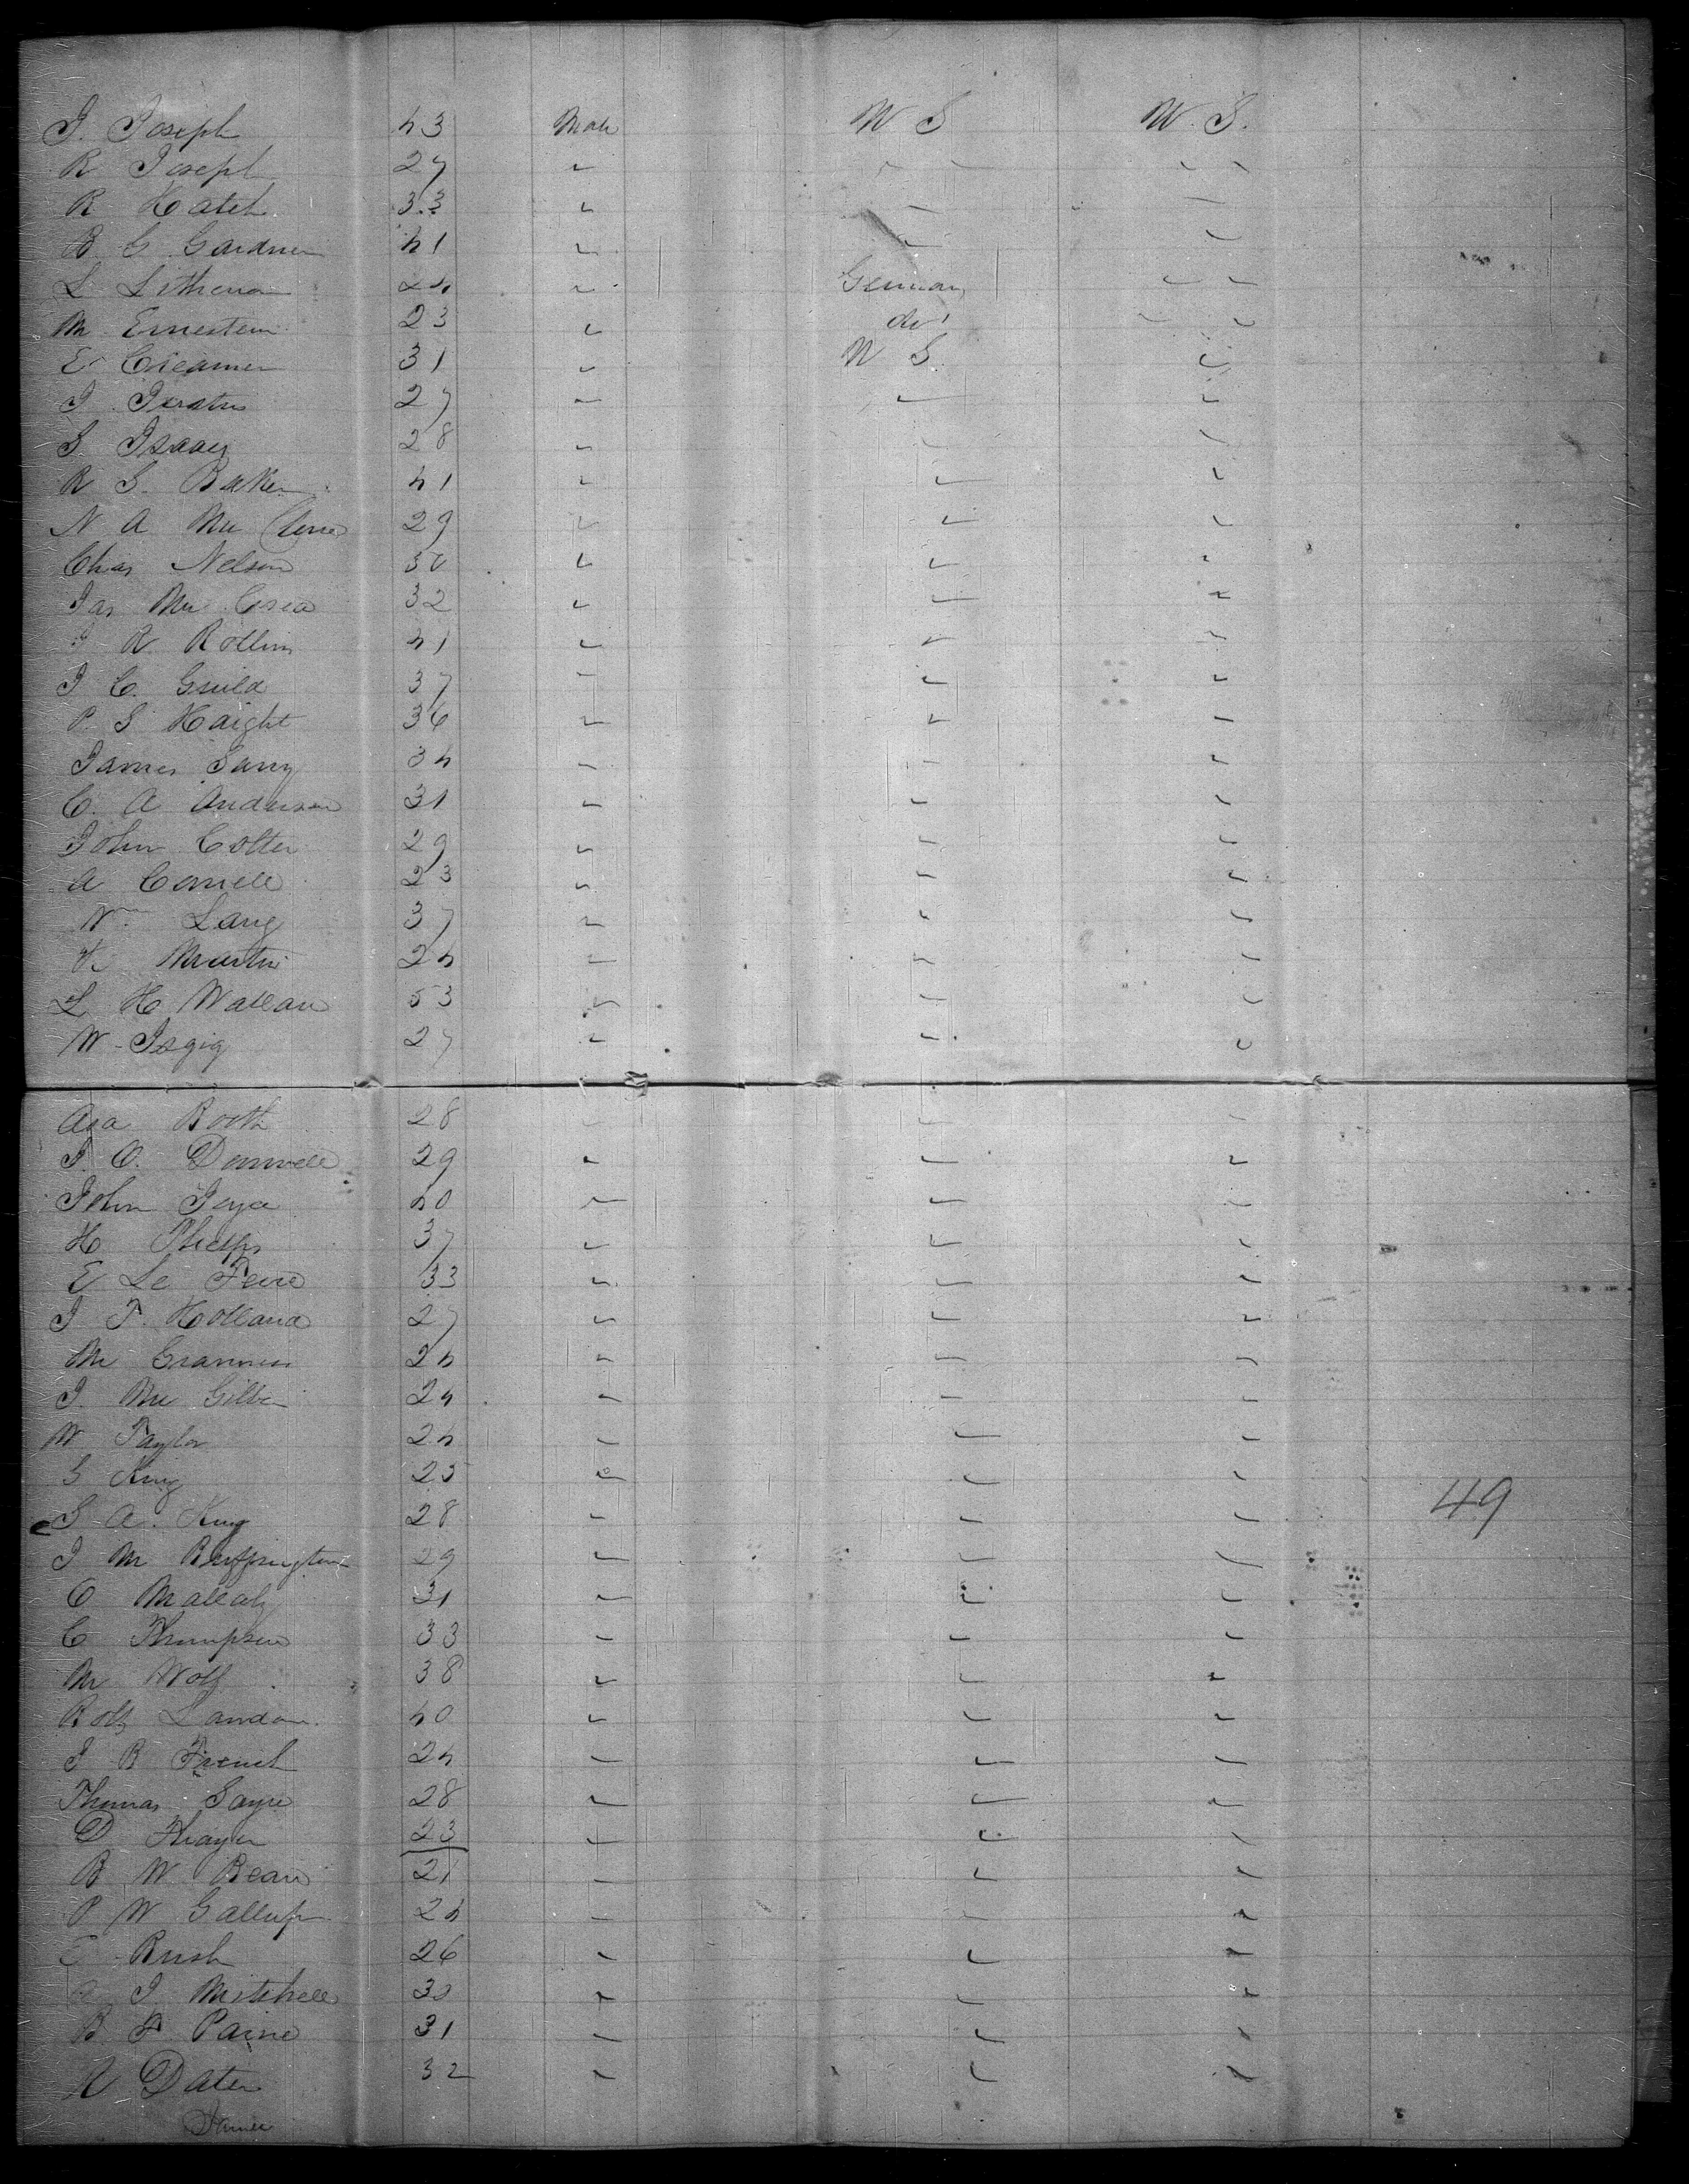 J. Joseph 43 Male U S U. S.
R Joseph 27 " " " " "
R Hatch 33 " " "
B. G Gardner 41 " " "
L 24 " German " "
M Ernestein 23 " do " "
E Creamer 31 " U S. "
J 27 " " "
S. Isaacs 28 " " "
R S. Baker 41 " " "
N A Mc 29 " " "
Chas Nelson 30 " " "
Jas Mc Crea 32 " " "
J R Rollins 41 " " "
J C. Guild 37 " " "
P. S Haight 36 " " "
James 34 " " "
C. A Anderson 31 " " "
John Cotter 29 " " "
A Cornell 23 " " "
Wm Lang 37 " " "
H Martin 24 " " "
L H Wallace 53 " " "
W 27 " " "
Asa Booth 28 " " "
J. O. Donnell 29 " " "
John Joyce 40 " " "
H Phelps 37 " " "
E Le Fevre 33 " " "
J T. Holland 27 " " "
M 24 " " "
J. Mc 24 " " "
W Taylor 24 " " "
S King 25 " " "
S A. King 28 " " "
49
J M Buffington 29 " " "
O 31 " " "
C Thompson 33 " " "
M Wolf 38 " " "
Robt Landon 40 " " "
J B French 24 " " "
Thomas Sayre 28 " " "
D Thayer 23 " " "
B W Bean 21 " " "
P W Gallup 24 " " "
Rush 26 " " "
J Mitchell 30 " " "
B F Paine 31 " " "
R Dater 32 " " "